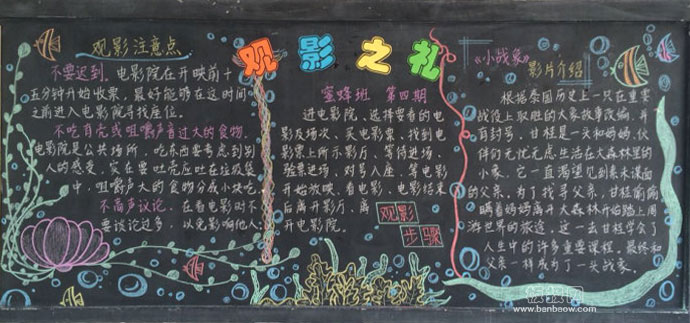 观影之礼
观影注意点
不要迟到。电影院在开映前十
五分钟开始收票,最好能够在这时间
之前进入电影院寻找座位。
不吃有壳或咀嚼声音过大的食物。
电影院是公共场所,吃东西要考虑到别
人的感受,实在要吐壳应吐在垃圾袋
中,咀嚼声大的食物分成小块吃
不高声议论,在看电影时不
要谈论过多,以免影响他人
蜜蜂班 第四期
进电影院、选择要看的电
影及场次、买电影票、找到电
影票上所示影厅、等待进场、
验票进场、对号入座、等电影
开始放映、看电影、电影结束
后离开影厅、离
开电影院。
观影
步骤
《小战象》
影片介绍
根据泰国历史上一只在重要
战役上取胜的大象故事改编,并
有封号,甘桂是一头和妈妈、伙
伴们无忧无虑生活在大森林里的
小象。它一直渴望见到素未谋面
的父亲,为了找寻父亲,甘桂偷偷
瞒着妈妈离开大森林开始踏上周
游世界的旅途,这一去甘桂学会了
人生中的许多重要课程,最终和
父亲一样成为了一头战象。
板报网
www.banbaow.com